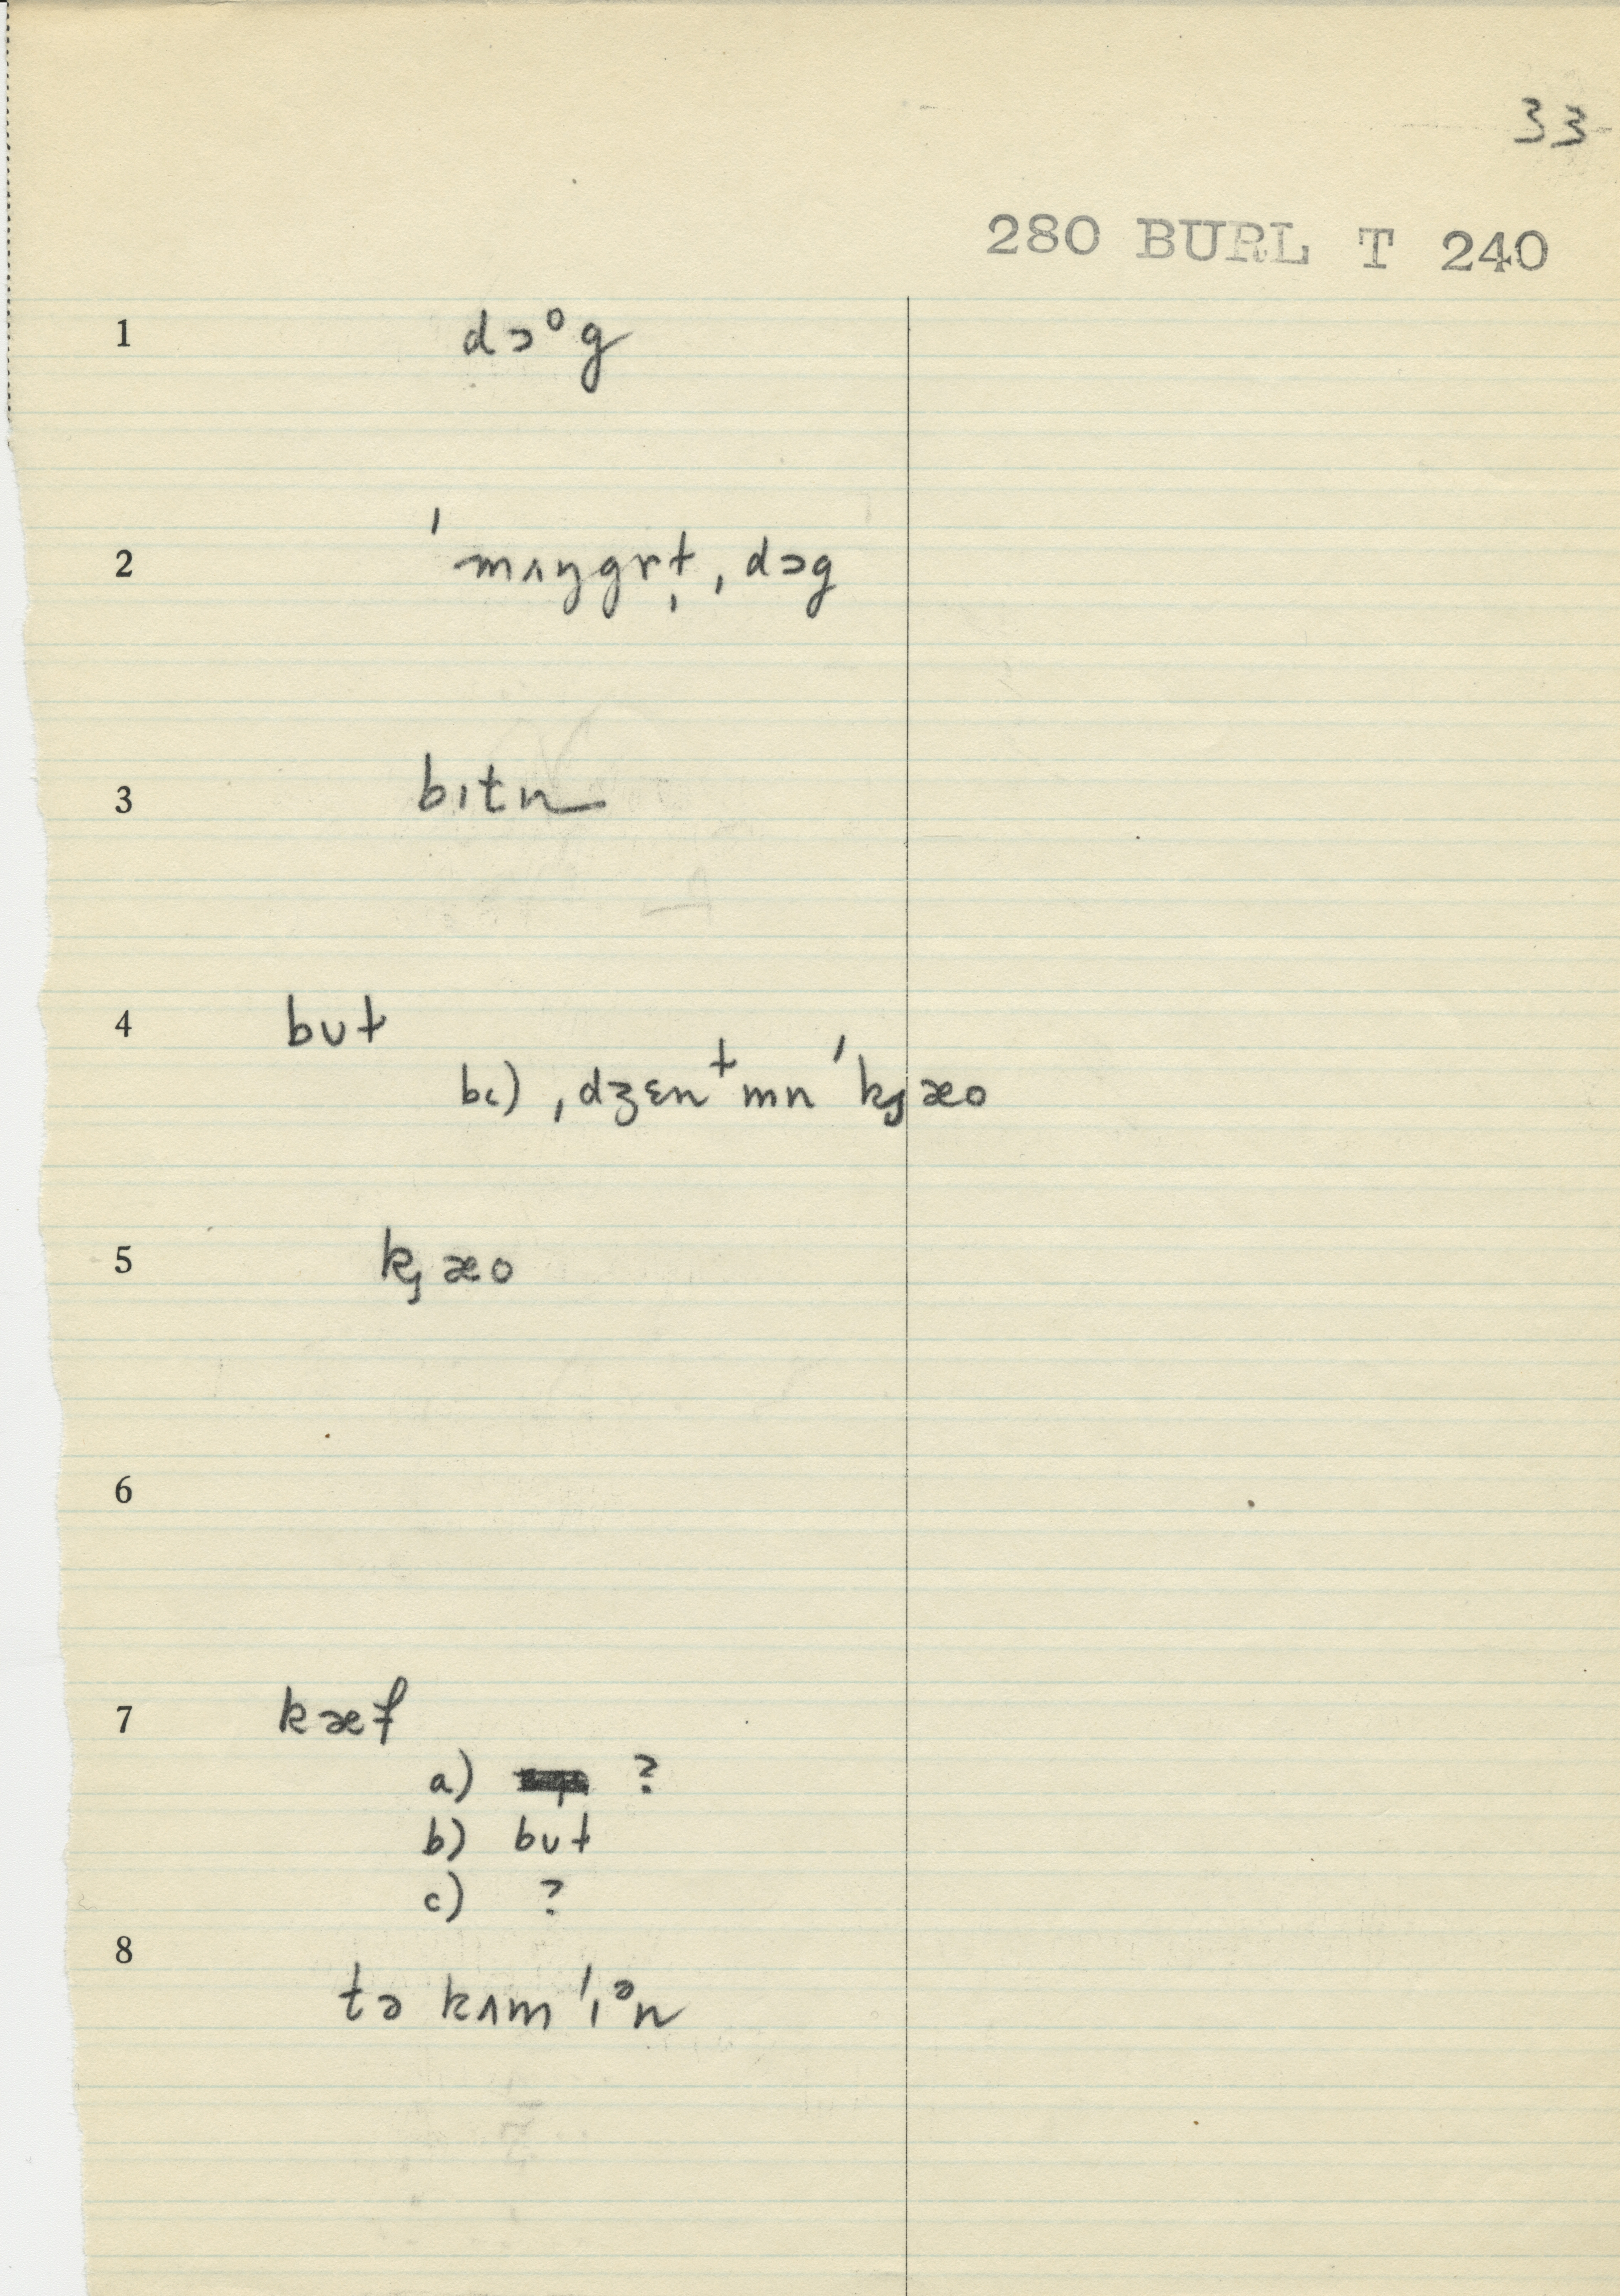 33
280 BURL T 240
1 dɔᵒg
2 ˈmʌŋgrt̩ ˌdɔg
3 bɪtn
4 but
bc) ˌdʒɛnᵗmn ˈkȷæo
5 kȷæo
6
7 kæf
a) ?
b) but
c) ?
8
tə kʌm ˈɪᵊn